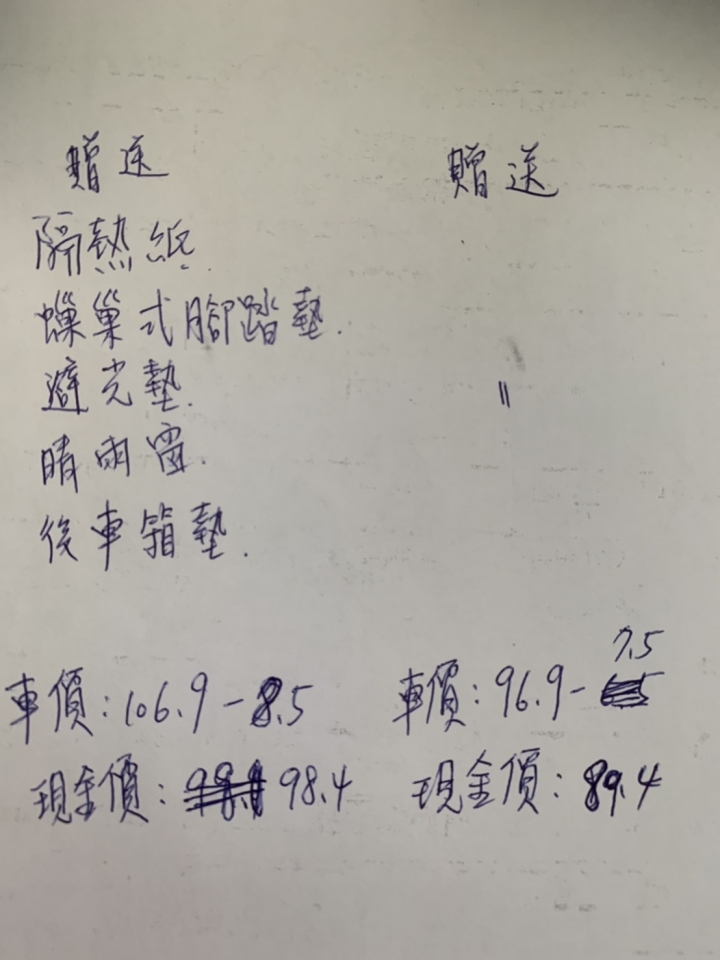 贈送
隔熱紙.
蠟巢式腳踏墊.
避光墊.
晴雨窗.
後車箱墊.
車價:106.9-8.5
現金價:98.4
贈送
〃
7.5
車價:96.9-
現金價:89.4